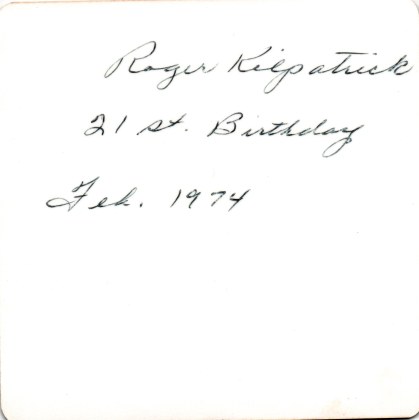 Roger Kilpatrick
21 st. Birthday
Feb. 1974